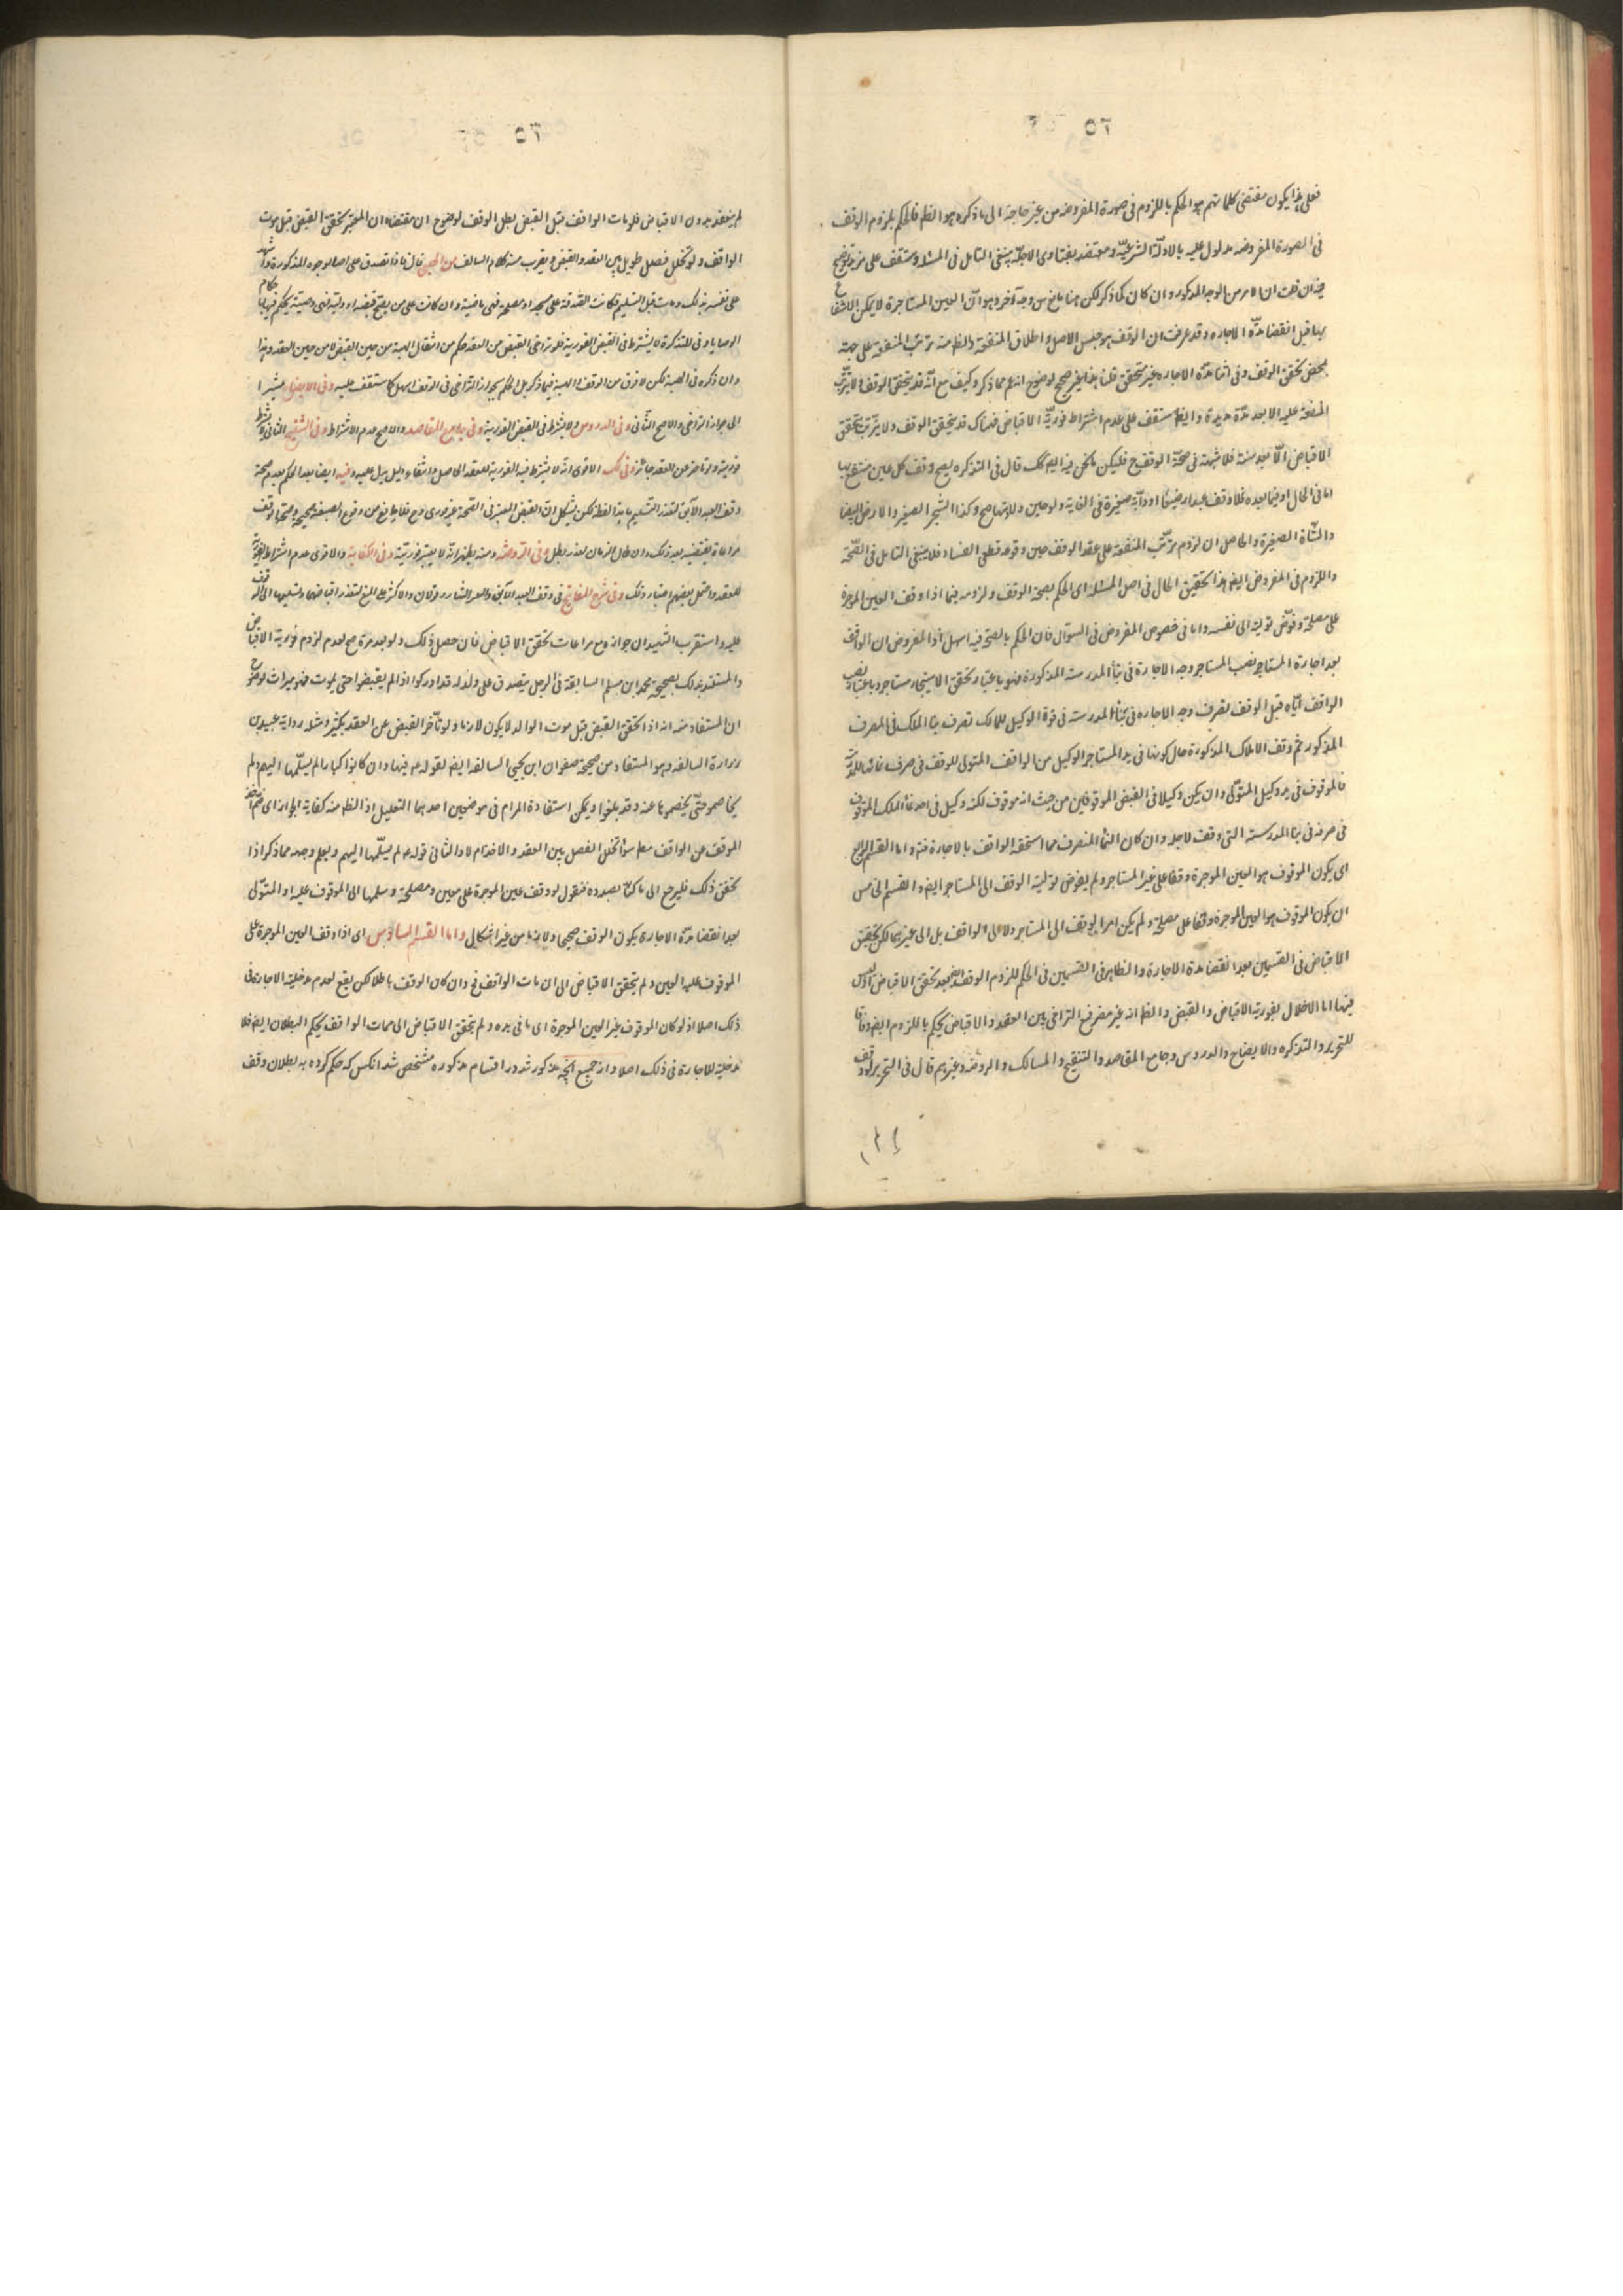 فعلی هذا یکون مقتضی کلماتهم هو الحکم باللزوم فی صورة المفروضه من غیر حاجة الی ما ذکره هو الظم فالحکم بلزوم الوقف
فی الصورة المفروضه مدلول علیه بالادلّة الشرعیّة ومعتضد بفتاوی الاجلّة ینبغی التامل فی المسئله وستقف علی مزید توضیح
فیه ان قلت ان الامر من الوجه المذکور وان کان کما ذکر لکن هنا مانع من وجه آخر وهو انّ العین المستاجرة لا یمکن الانتفاع
بها قبل انقضا مدّة الاجاره وقد عرفت ان الوقف هو حبس الاصل واطلاق المنفعة والظ منه ترتّب المنفعة علی جهته
بمحض تحقق الوقف وفی اثنا مدّة الاجاره غیر متحقق قلنا هذا غیر صحیح لوضوح انه اعم مما ذکر وکیف مع انّه قد یتحقق الوقف ولا یترتّب
المنفعة علیه الا بعد مدّة مدیدة وایضا ستقف علی عدم اشتراط فوریّة الاقباض فهناک قد یتحقق الوقف ولا یترتب تحقق
الاقباض الّا بعد سنة فلا شبهة فی صحّة الوقف ح فلیکن ما نحن فیه ایضا کک قال فی التذکره یصح وقف کل عین منتفع بها
اما فی الحال او فیما بعده فلا وقف عبدا رضیعا او دابّة صغیرة فی الغایة ولو حین ولادتهما صح وکذا الشجر الصغیر والارض البیضا
والشّاة الصغیرة والحاصل ان لزوم ترتّب المنفعة علی عقد الوقف حین وقوعه قطعی الفساد فلا ینبغی التامل فی الصّحة
واللزوم فی المفروض ایضا هذا تحقیق الحال فی اصل المسئله ای الحکم بصحة الوقف ولزومه فیما اذا وقف العین الموجرة
علی مصلحة وفوّض تولیته الی نفسه واما فی خصوص المفروض فی السؤال فان الحکم بالصحة فیه اسهل اذ المفروض ان الواقف
بعد اجارة المستاجر نصب المستاجر وجه الاجارة فی بناء المدرسته المذکورة فهو باعتبار تحقق الاستیجار مستاجر وباعتبار نصب
الواقف ایّاه قبل الوقف لصرف وجه الاجاره فی بناء المدرسته فی قوة الوکیل للمالک تصرف بنا الملک فی المصرف
المذکور ثم وقف الاملاک المذکورة حال کونها فی ید المستاجر الوکیل من الواقف المتولی للوقف فی صرف نمائها للمدرسة
فالموقوف فی ید وکیل المتولّی وان یکن وکیلا فی القبض الموقوفین من حیث انه موقوف لکنه وکیل فی احد نماء الملک الموقوف
فی صرفه فی بنا المدرسته التی وقف لاجله وان کان النما المنصرف مما استحقه الواقف بالاجارة منه واما القسم الرابع
ای یکون الموقوف هو العین الموجرة وقفا علی غیر المستاجر ولم یفوض تولیته الوقف الی المستاجر ایضا والقسم الخامس
ان یکون الموقوف هو العین الموجرة وقفا علی مصلحة ولم یکن امر الوقف الی المستاجر ولا الی الواقف بل الی غیرهما لکن تحقق
الاقباض فی القسمین بعد انقضا مدة الاجارة والظاهر فی القسمین فی الحکم للزوم الوقف ایضا بعد تحقق الاقباض اذ لیس
فیهما الا الاخلال بفوریة الاقباض والقبض والظ انه غیر مضر فمع التراخی بین العقد والاقباض یحکم باللزوم ایضا وفاقا
للتحریر والتذکره والایضاح والدروس وجامع المقاصد والتنقیح والمسالک والروضة وغیرهم قال فی التحریر لو وقف
لم ینعقد بدون الاقباض فلو مات الواقف قبل القبض بطل الوقف لوضوح ان مقتضاه ان المعتبر تحقق القبض قبل موت
الواقف ولو تخلل فصل طویل بین العقد والقبض ویقرب منه کلام السالف من المهذب قال فاذا تصدق علی احد الوجوه المذکورة واشهد
علی نفسه بذلک ومات قبل التسلیم فکانت الصّدقة علی مسجد او مصلحة فهی ماضیة وان کانت علی من یصح قبضه او ولیّه فهی وصیّة یحکم فیها باحکام
الوصایا وفی التذکرة لا یشترط فی القبض الفوریة فلو تراخی القبض من العقد حکم من انتقال الهبة من حین القبض لا من حین العقد وهذا
وان ذکره فی الهبة لکن لا فرق من الوقف الهبة فیما ذکر بل الحکم بجواز التراخی فی الوقف اسهل کما ستقف علیه وفی الایضاح مشیرا
الی جواز التراخی والاصح الثّانی وفی الدروس ولا یشترط فی القبض الفوریة وفی جامع المقاصد والاصح عدم الاشتراط وفی التنقیح الثانی لا یشترط
فوریته ولو تاخر عن العقد جائز وفی لک الاقوی انّه لا یشترط فیه الفوریة للعقد للاصل وانتفاء دلیل یدل علیه وفیه ایضا بعد الحکم بعدم صحة
وقف العبد الآبق لتعذر التسلیم هذا لفظه لکن یشکل انّ القبض المعتبر فی الصّحة غیر فوری وح فلا مانع من وقوع الصیغة صحیحة وصحّة الوقف
مراعاة بقبضه بعد ذلک وان طال الزمان فان تعذر بطل وفی الروضة ومنه یظهر انّه لا یعتبر فوریّته وفی الکفایة والاقوی عدم اشتراط الفوریّة
للعقد واحتمل بعضهم اعتبار ذلک وفی شرح المفاتیح فی وقف العبد الآبق والبعیر الشارد قولان والاکثر علی المنع لتعذر اقباضهما وتسلیمها الی الموقوف
علیه واستقرب الشهیدان جوازه مع مراعات تحقق الاقباض فان حصل ذلک ولو بعد مرة صح لعدم لزوم فوریة الاقباض
والمستند بذلک صحیحة محمد ابن مسلم السابقة فی الرجل یتصدق علی ولد له قد ادرکوا اذا لم یقبضوا حتی یموت فهو میراث لوضوح
ان المستفاد منه انه اذا تحقق القبض قبل موت الوالد لا یکون لازما ولو تأخر القبض عن العقد بکثیر ومثله روایة عبید بن
زرارة السالفه وهو المستفاد من صحیحة صفوان ابن یحیی السالفه ایضا لقوله عم فیها وان کانوا کبارا لم یسلّمها الیهم ولم
یخاصموا حتّی یخصموها عنه وقد بلغوا ویمکن استفادة المرام فی موضعین احدهما التعلیل اذ الظ منه کفایة الجواز ای فتخ
الموقف عن الواقف مط سواء تخلل الفصل بین العقد والاخدام لا والثانی قوله عم لم یسلّمها الیهم ویعلم وجهه مما ذکر اذا
تحقق ذلک فلیرجع الی ما کنّا بصدده فنقول لو وقف عین الموجرة علی معین ومصلحة وسلمها الی الموقوف علیه او المتولّی
بعد انقضا مدّة الاجارة یکون الوقف صحیحا ولازما من غیر اشکال واما القسم السادس ای اذا وقف العین الموجرة علی
الموقوف علیه العین ولم یتحقق الاقباض الی ان مات الواقف فح وان کان الوقف باطلا لکن یقع لعدم مدخلیة الاجارة فی
ذلک اصلا اذ لو کان الموقوف غیر العین الموجرة ای ما فی یده ولم یتحقق الاقباض الی ممات الواقف یحکم البطلان ایضا فلا
مدخلیة للاجارة فی ذلک اصلا واز جمیع آنچه مذکور شد در اقسام مذکوره مشخص شد انکس که حکم کرده به بطلان وقف